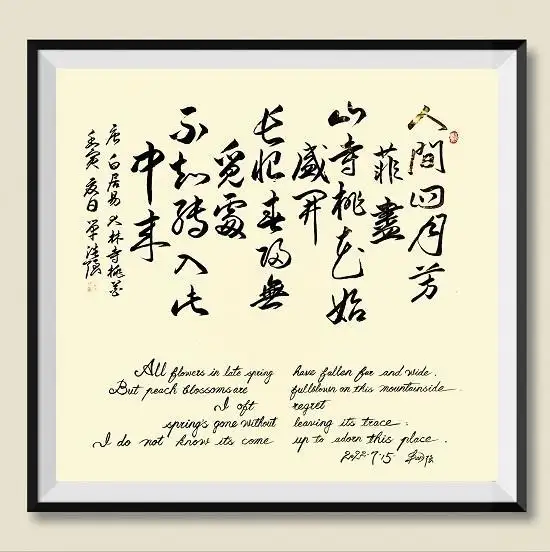 人間四月芳
菲盡
山寺桃花始
盛開
长恨春歸無
覓處
不知轉入此
中来
唐 白居易 大林寺桃花
壬寅 夏日
All flowers in late spring have fallen far and wide.
But peach blossoms are fullblown on this mountainside.
I oft regret
spring's gone without leaving its trace;
I do not know its come up to adorn this place.
2022-7-15